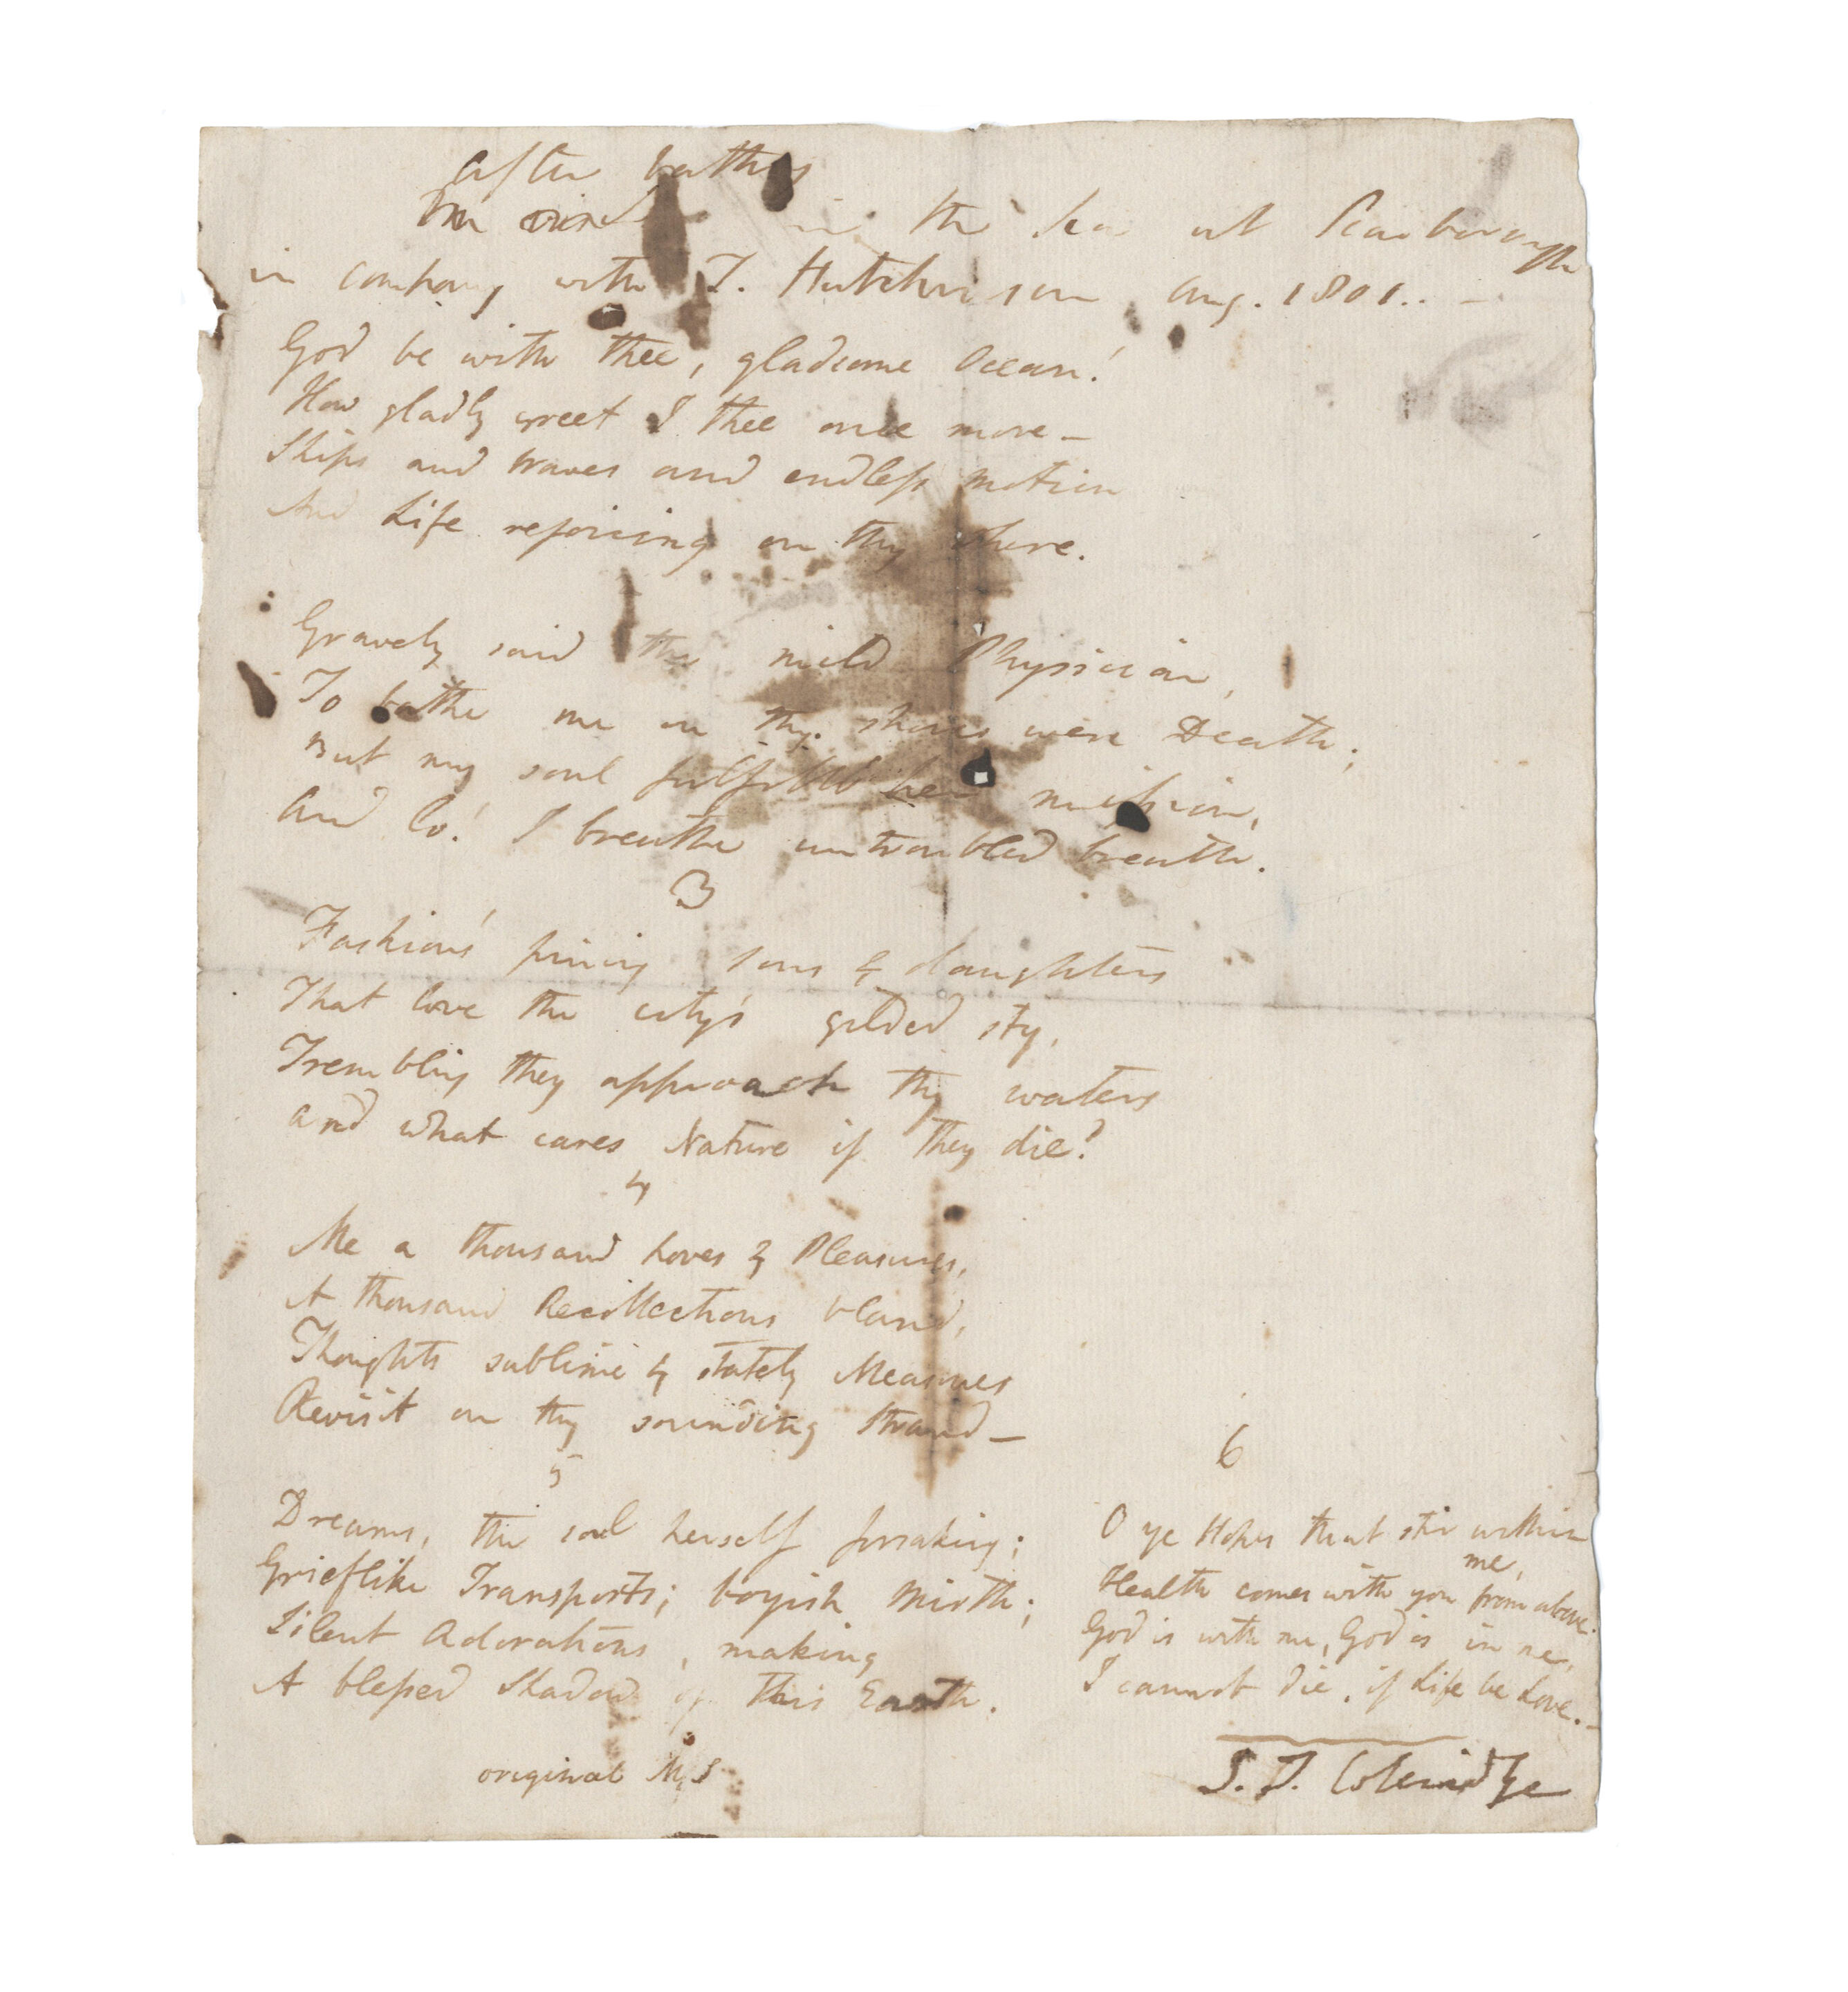 After bathing
in the Sea at Scarborough
in company with T. Hutchinson Aug. 1801. —
God be with thee, gladsome Ocean!
How gladly greet I thee once more —
Ships and Waves and endless motion
And Life rejoicing on thy shore.
Gravely said the mild Physician,
To bathe me on thy shores were Death;
But my soul fulfilld her mission,
And lo! I breathe untroubled breath.
3
Fashion's pining sons & daughters
That love the city's gilded sty,
Trembling they approach thy waters
And what cares Nature if they die?
4
Me a thousand Loves & Pleasures,
A thousand Recollections bland,
Thoughts sublime & stately Measures
Revisit on thy sounding Strand —
5
Dreams, the soul herself forsaking;
Grieflike Transports; boyish Mirth;
Silent Adorations, making
A blessed Shadow of this Earth.
6
O ye Hopes that stir within
me,
Health comes with you from above.
God is with me, God is in me,
I cannot die, if Life be Love. —
original MS
S. T. Coleridge